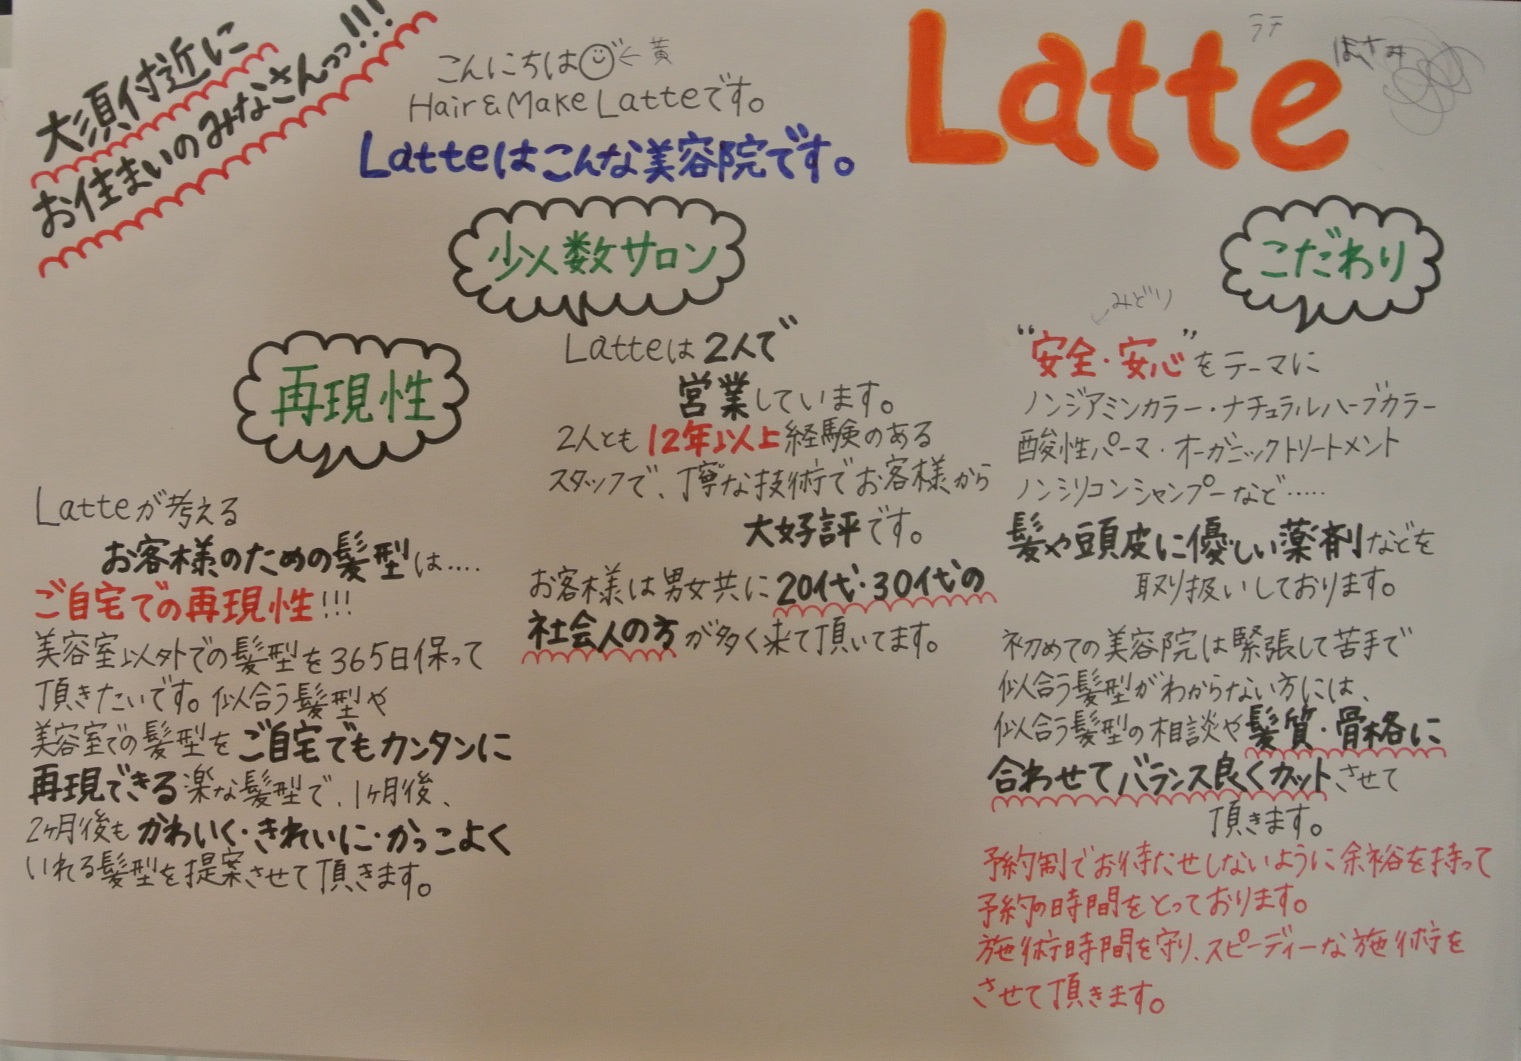 大須付近に
お住まいのみなさんっっ!!!
こんにちは ←黄
Hair&Make Latteです。
Latteはこんな美容院です。
Latte
ラテ
はさみ
再現性
Latteが考える
お客様のための髪型は....
ご自宅での再現性!!!
美容室以外での髪型を365日保って
頂きたいです。似合う髪型や
美容室での髪型をご自宅でもカンタンに
再現できる楽な髪型で、1ヶ月後、
2ヶ月後もかわいく・きれいに・かっこよく
いれる髪型を提案させて頂きます。
少人数サロン
Latteは2人で
営業しています。
2人とも12年以上経験のある
スタッフで、丁寧な技術でお客様から
大好評です。
お客様は男女共に20代・30代の
社会人の方が多く来て頂いてます。
こだわり
みどり
"安全・安心"をテーマに
ノンジアミンカラー・ナチュラルハーブカラー
酸性パーマ・オーガニックトリートメント
ノンシリコンシャンプーなど.....
髪や頭皮に優しい薬剤などを
取り扱いしております。
初めての美容院は緊張して苦手で
似合う髪型がわからない方には、
似合う髪型の相談や髪質・骨格に
合わせてバランス良くカットさせて
頂きます。
予約制でお待たせしないように余裕を持って
予約の時間をとっております。
施術時間を守り、スピーディーな施術を
させて頂きます。